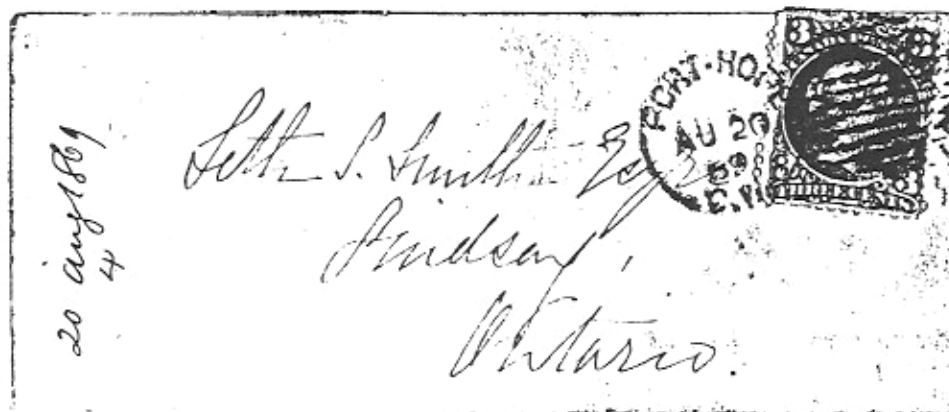 20 Aug 1869
4
Seth S. Smith Esqre
Lindsay,
Ontario.
PORT-HOPE
AU 20
69
C.W.
3 3